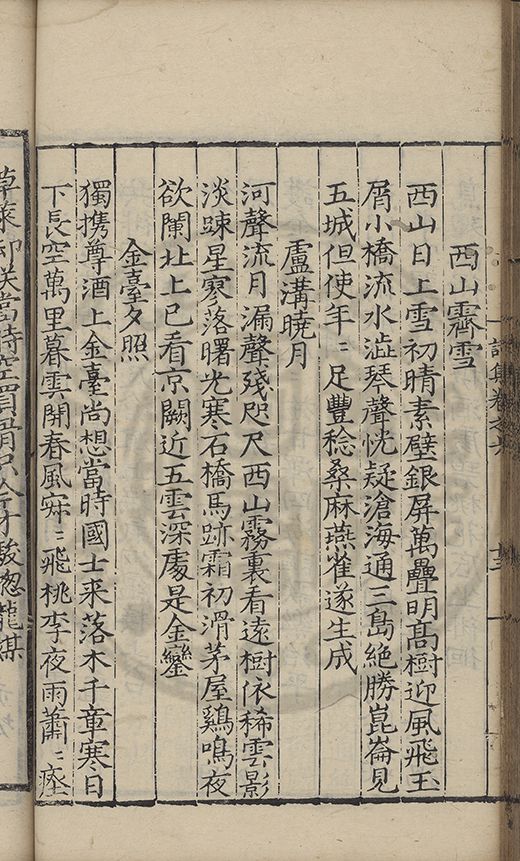 詩集卷之六
十三
西山霽雪
西山日上雪初晴素壁銀屏萬疊明髙樹迎風飛玉
屑小橋流水澁琴聲恍疑滄海通三島絶勝崑崙見
五城但使年〻足豐稔桑麻燕雀遂生成
盧溝曉月
河聲流月漏聲殘咫尺西山霧裏看遠樹依稀雲影
淡踈星寥落曙光寒石橋馬跡霜初滑茅屋鷄鳴夜
欲闌北上已看京闕近五雲深䖏是金鑾
金臺夕照
獨携尊酒上金臺尚想當時國士来落木千章寒日
下長空萬里暮雲開春風寂〻飛桃李夜雨蕭〻
草萊却笑當時空買骨只今才駿龍媒